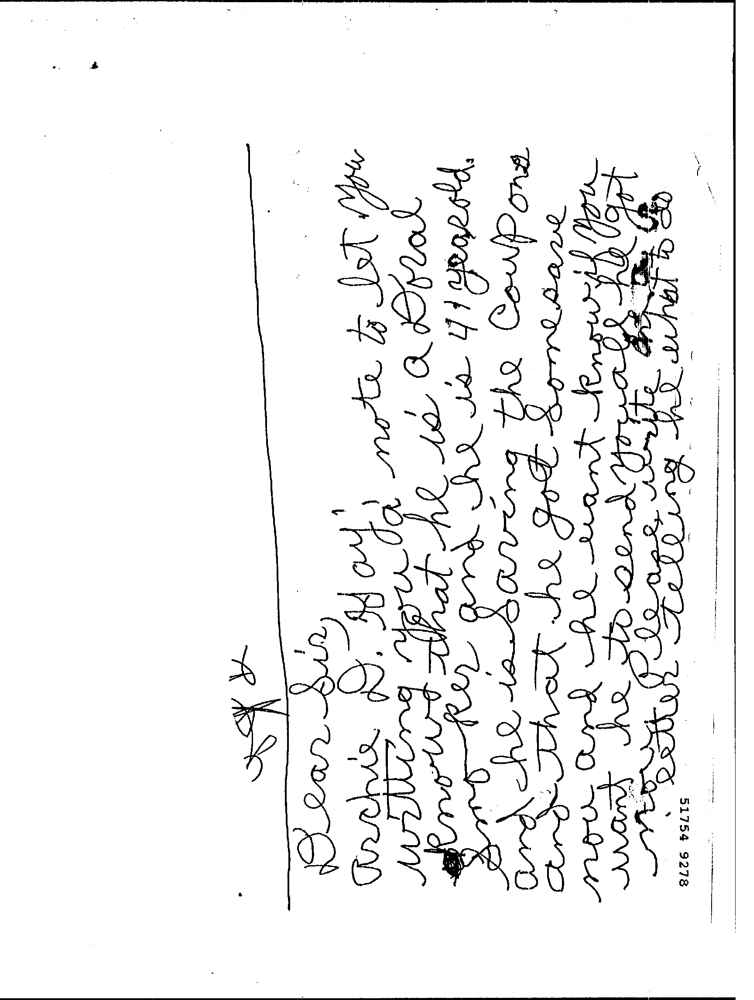 Dear Sir,
Archie D. Hay's
writting you a note to let you
know that he is a Doral
Smoker and he is 41 year old.
and he is Saving the Coupons
and that he got Some save
now and he want know if you
want he to send you all he got
now Please write a
letter telling he what to do
51754 9278